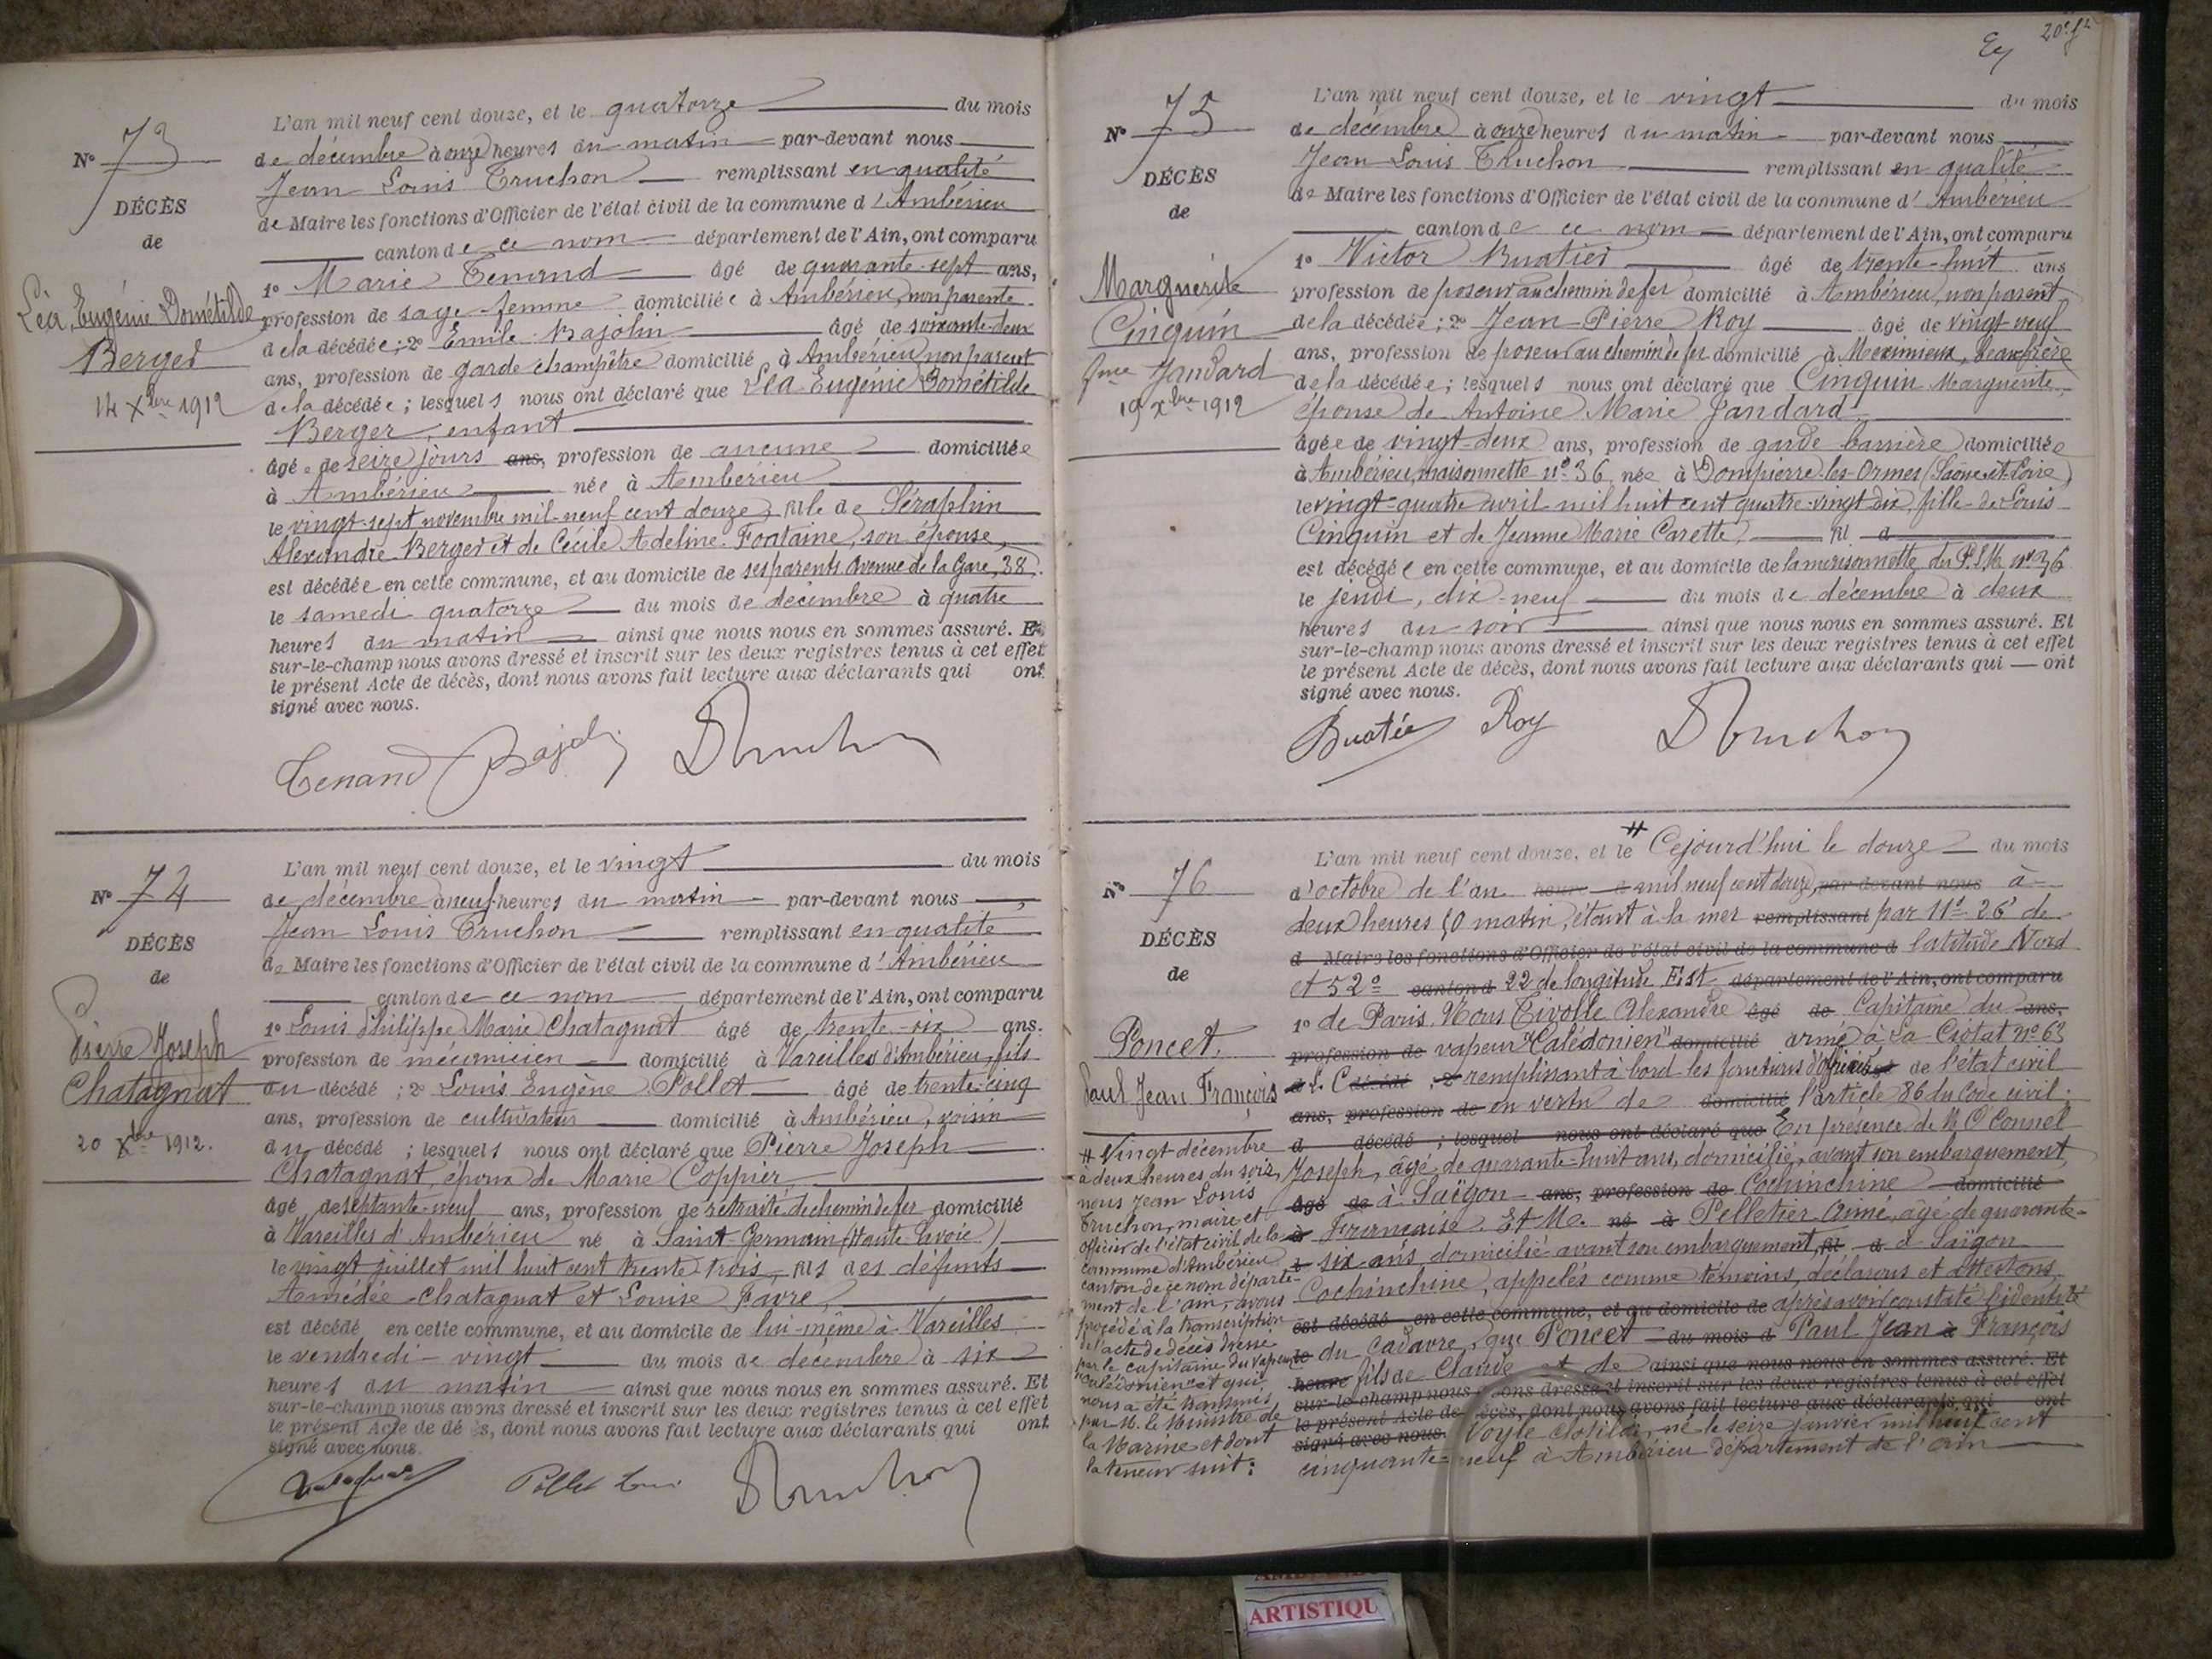 N° 73
DÉCÈS
de
Léa, Eugénie Dométilde
Berger
14 Xbre 1912
L'an mil neuf cent douze, et le quatorze du mois
de décembre à onze heures du matin par-devant nous
Jean Louis Truchon remplissant en qualité
de Maire les fonctions d'Officier de l'état civil de la commune d'Ambérieu
canton de ce nom département de l'Ain, ont comparu
1° Marie Tenand âgé de quarante-sept ans,
profession de sage-femme domiciliée à Ambérieu, non parente
de la décédée; 2° Emile Bajolin âgé de soixante-deux
ans, profession de garde champêtre domicilié à Ambérieu non parent
de la décédée; lesquels nous ont déclaré que Léa Eugénie Dométilde
Berger, enfant
âgée de seize jours ans, profession de aucune domiciliée
à Ambérieu née à Ambérieu
le vingt-sept novembre mil-neuf cent douze, file de Séraphin
Alexandre Berger et de Cécile Adeline Fontaine, son épouse,
est décédée en cette commune, et au domicile de ses parents Avenue de la Gare, 38,
le samedi quatorze du mois de décembre à quatre
heures du matin ainsi que nous nous en sommes assuré. Et
sur-le-champ nous avons dressé et inscrit sur les deux registres tenus à cet effet
le présent Acte de décès, dont nous avons fait lecture aux déclarants qui ont
signé avec nous.
Tenand Bajolin Truchon
N° 74
DÉCÈS
de
Pierre Joseph
Chatagnat
20 Xbre 1912.
L'an mil neuf cent douze, et le vingt du mois
de décembre à neuf heures du matin par-devant nous
Jean Louis Truchon remplissant en qualité
de Maire les fonctions d'Officier de l'état civil de la commune d'Ambérieu
canton de ce nom département de l'Ain, ont comparu
1° Louis Philippe Marie Chatagnat âgé de trente-six ans.
profession de mécanicien domicilié à Vareilles d'Ambérieu, fils
du décédé; 2° Louis Eugène Pollet âgé de trente-cinq
ans, profession de cultivateur domicilié à Ambérieu, voisin
du décédé; lesquels nous ont déclaré que Pierre Joseph
Chatagnat, époux de Marie Coppier,
âgé de septante-neuf ans, profession de retraité de chemin de fer domicilié
à Vareilles d'Ambérieu né à Saint-Germain (Haute Savoie)
le vingt juillet mil huit cent trente-trois, fils des défunts
Amédée Chatagnat et Louise Favre,
est décédé en cette commune, et au domicile de lui-même à Vareilles
le vendredi vingt du mois de décembre à six
heures du matin ainsi que nous nous en sommes assuré. Et
sur-le-champ nous avons dressé et inscrit sur les deux registres tenus à cet effet
le présent Acte de décès, dont nous avons fait lecture aux déclarants qui ont
signé avec nous.
Pollet Louis Truchon
20e ft
N° 75
DÉCÈS
de
Marguerite
Cinquin
fme Jandard
19 Xbre 1912
L'an mil neuf cent douze, et le vingt du mois
de décembre à onze heures du matin par-devant nous
Jean Louis Truchon remplissant en qualité
de Maire les fonctions d'Officier de l'état civil de la commune d'Ambérieu
canton de ce nom département de l'Ain, ont comparu
1° Victor Buatier âgé de trente-huit ans
profession de poseur au chemin de fer domicilié à Ambérieu, non parent
de la décédée; 2° Jean-Pierre Roy âgé de vingt-neuf
ans, profession de poseur au chemin de fer domicilié à Meximieux, beau frère
de la décédée; lesquels nous ont déclaré que Cinquin Marguerite,
épouse de Antoine Marie Jandard
âgée de vingt-deux ans, profession de garde barrière domiciliée
à Ambérieu, maisonnette n° 36, née à Dompierre-les-Ormes (Saône-et-Loire)
le vingt-quatre avril mil huit cent quatre-vingt-dix, fille de Louis
Cinquin et de Jeanne Marie Carette fil d
est décédée en cette commune, et au domicile de la maisonnette du P.L.M. n° 36
le jeudi, dix-neuf du mois de décembre à deux
heures du soir ainsi que nous nous en sommes assuré. Et
sur-le-champ nous avons dressé et inscrit sur les deux registres tenus à cet effet
le présent Acte de décès, dont nous avons fait lecture aux déclarants qui — ont
signé avec nous.
Buatier Roy Truchon
N° 76
DÉCÈS
de
Poncet,
Paul Jean François
# Vingt décembre
à deux heures du soir,
nous Jean Louis
Truchon, maire et
officier de l'état civil de la
commune d'Ambérieu
canton de ce nom départe-
ment de l'ain, avons
procédé à la transcription
de l'acte de décès dressé
par le capitaine du vapeur
"Calédonien" et qui
nous a été transmis
par M. le Ministre de
la Marine et dont
la teneur suit:
L'an mil neuf cent douze, et le # Cejourd'hui le douze du mois
d'octobre de l'an heure d mil neuf cent douze, par-devant nous à
deux heures 50 matin, étant à la mer remplissant par 11° 26' de
d Maire les fonctions d'Officier de l'état civil de la commune d latitude Nord
et 52° canton d 22 de longitude Est département de l'Ain, ont comparu
1° de Paris. Nous Tivolle Alexandre âgé de Capitaine du ans,
profession de vapeur "Calédonien" domicilié armé à La Ciotat n° 63
d L. C décédé; 2° remplissant à bord les fonctions d'officier de l'état civil
ans, profession de en vertu de domicilié l'article 86 du Code civil.
d décédé; lesquel nous ont déclaré que En présence de M O Connel
Joseph, âgé de quarante-huit ans, domicilié, avant son embarquement,
âgé de à Saïgon ans, profession de Cochinchine domicilié
à Française. Et M. né à Pelletier Aimé, âgé de quarante-
six ans domicilié avant son embarquement, fil d à Saïgon
Cochinchine, appelés comme témoins, déclarons et attestons
est décédé en cette commune, et au domicile de après avoir constaté l'identité
le du cadavre, que Poncet du mois d Paul Jean à François
heure fils de Claude et de ainsi que nous nous en sommes assuré. Et
sur-le-champ nous avons dressé et inscrit sur les deux registres tenus à cet effet
le présent Acte de décès, dont nous avons fait lecture aux déclarants qui ont
signé avec nous. Voyle Clotilde, né le seize janvier mil huit cent
cinquante-neuf à Ambérieu département de l'ain
ARTISTIQU